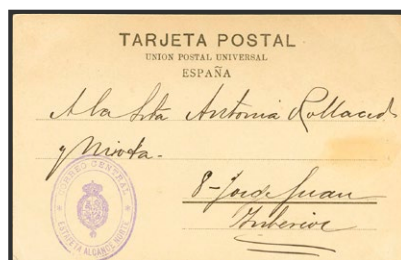 TARJETA POSTAL
UNION POSTAL UNIVERSAL
ESPAÑA
A la Srta Antonia
y
8-Jorge Juan
Interior
CORREO CENTRAL
ESTAFETA ALCANCE NORTE